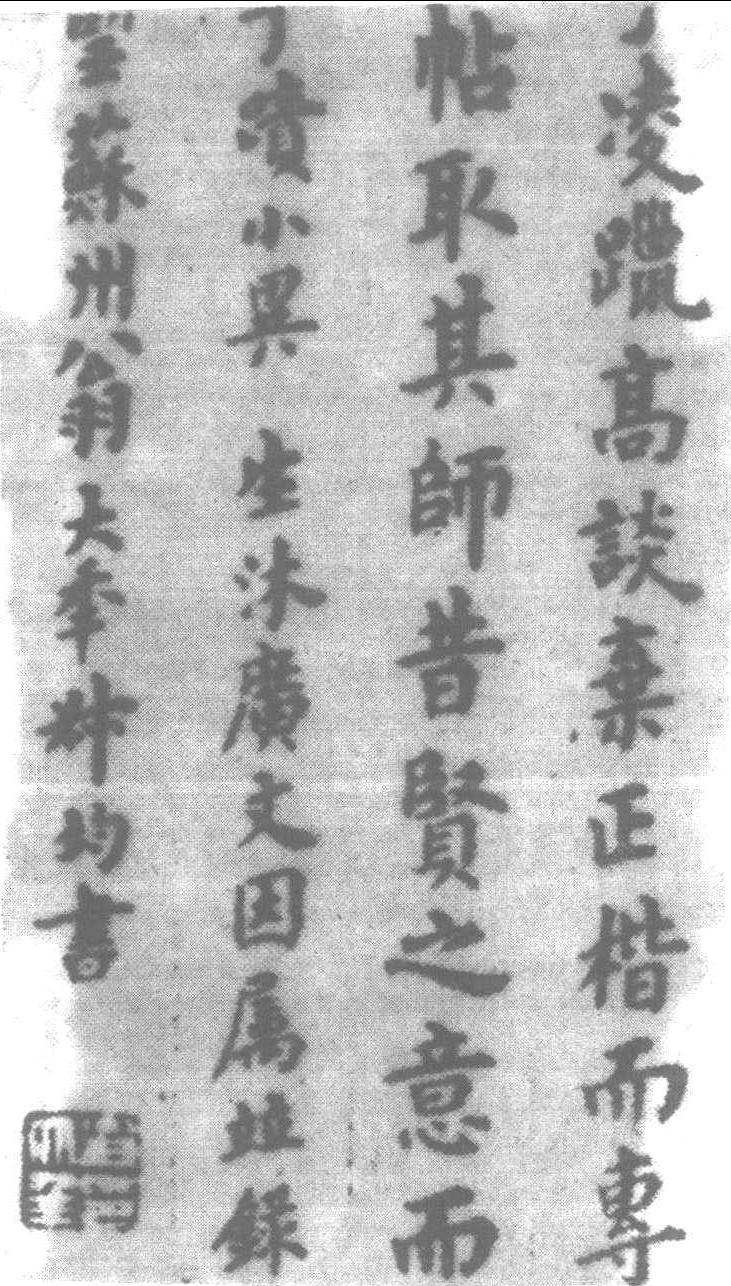 凌躐高談棄正楷而專
帖取其師昔賢之意而
小異 生沐廣文因属並錄
蘇州翁大年叔均書